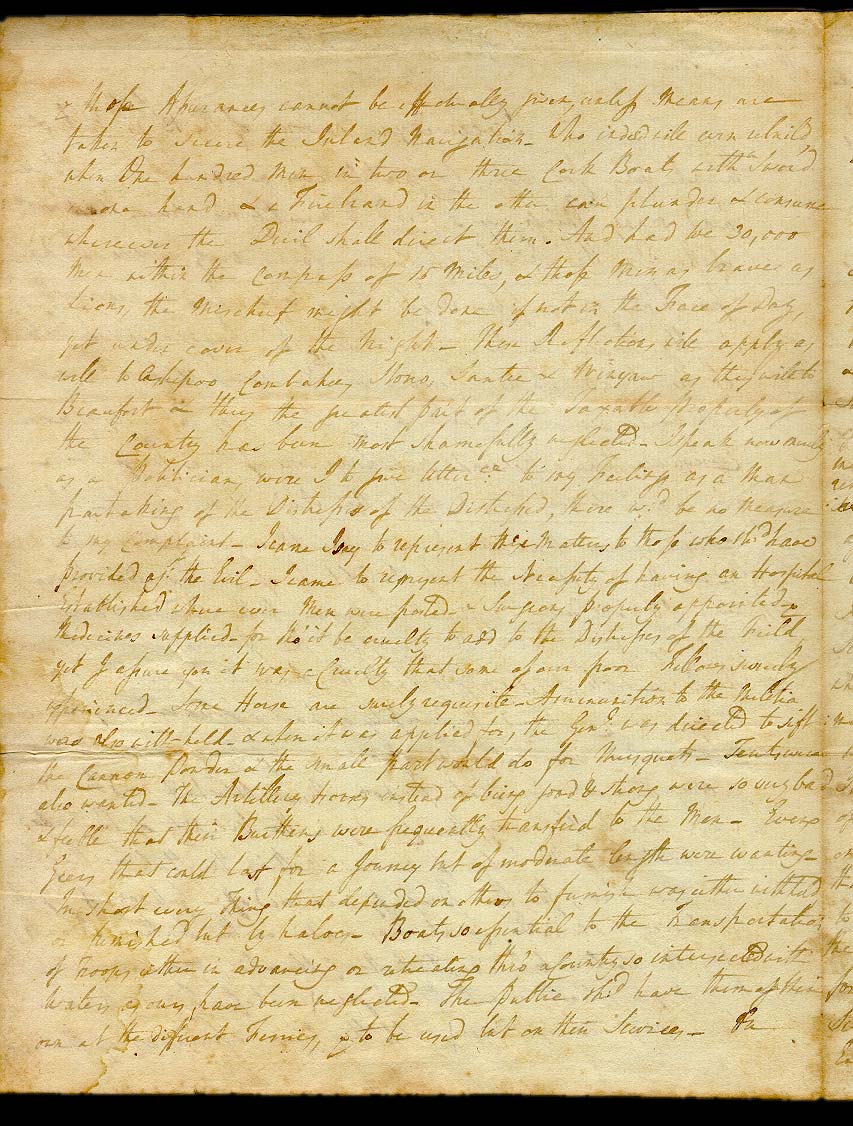 those Assurances cannot be effectually given, unless Means are
taken to secure the Inland Navigation – Who indeed will even rebuild,
when One hundred Men in two or three Cork Boats with a Sword
one hand & a Firebrand in the other can plunder & consume
wherever the Devil shall direct them. And had we 20,000
Men within the Compass of 15 Miles, & those Men as brave as
Lions, the Mischief might be done if not in the Face of Day,
yet under cover of the Night – These Reflections will apply as
well to Ashepoo Combahee, Stono, Santee & Winyaw as they will to
Beaufort & thus the greatest part of the Taxable Property of
the Country has been most shamefully neglected – I speak now
as a Politician, were I to give to my Feelings as a Man
partaking of the Distresses of the Distressed, there wo'd be no Measure
to my Complaint – I came to represent these Matters to those who sho'd have
provided agt the Evil – I came to represent the Necessity of having an Hospital
Established where ever Men were posted – & Surgeons properly appointed &
Medicines supplied – for it be cruelty to add to the Distresses of the Field,
yet I assure you it was a Cruelty that some of our poor Fellows surely
experienced – Some Horse are surely requisite – Ammunition to the Militia
was also with-held – & when it was applied for, the Genl was directed to sift
the Cannon Powder & the small part would do for Musquets – Tents were
also wanted – The Artillery Horses instead of being good & strong were so very bad
& feeble that their Burthens were frequently transfer'd to the Men – Even
Geers that could last for a Journey but of moderate length were wanting –
In short every Thing that depended on others to furnish was either withheld
or furnished but by halves – Boats so essential to the Transportation
of Troops either in advancing or retreating thro' a Country so intersected with
Waters as ours, have been neglected – The Public sho'd have them of their
own at the different Ferries, & to be used but on their Services –